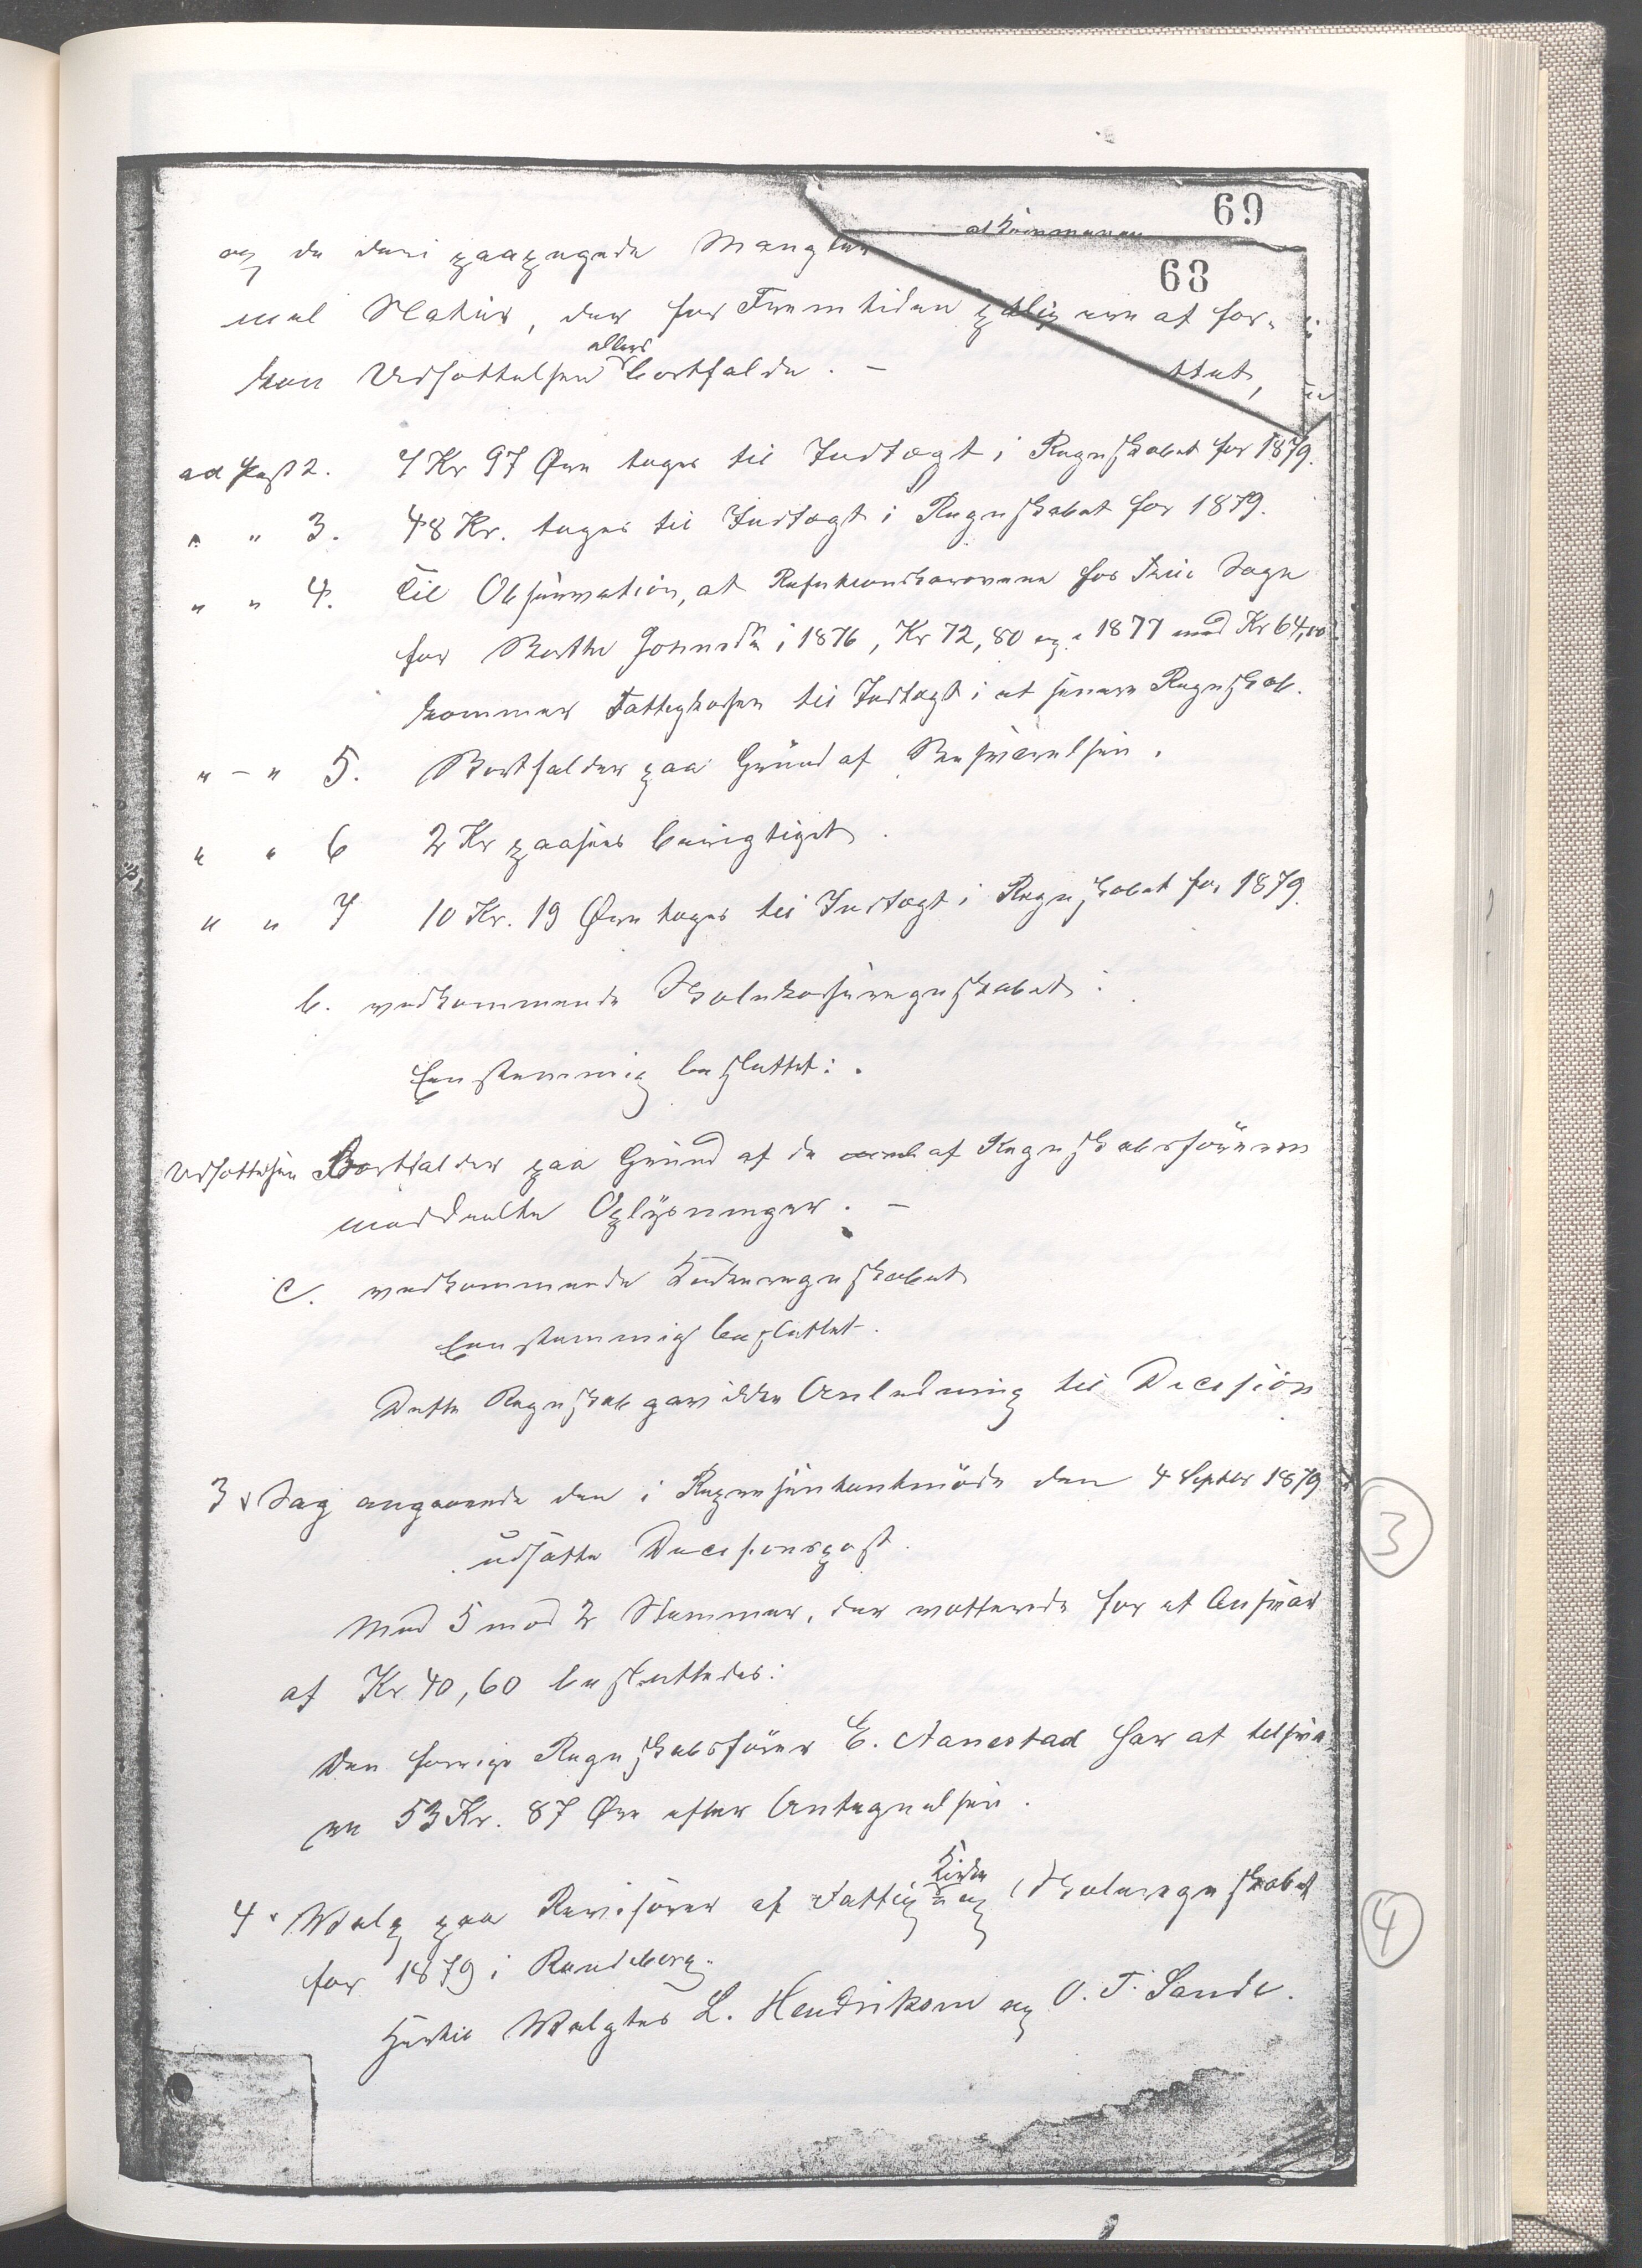 69
68
og de deri paapegede Mangler
mel Natur, der for Fremtiden pligere at for-
kan Udsættelsen bortfalde. -
ttet,
ad Post 2. 7 Kr 97 Øre tages til Indtægt i Regnskabet for 1879.
" " 3. 48 Kr. tages til Indtægt i Regnskabet for 1879.
" " 4. Til Observation, at Refusionskravene hos Sogn
for Berthe i 1876, Kr 72,80 og i 1877 med Kr 64,00
kommer Fattigkassen til Indtægt i et senere Regnskab.
" - " 5. Bortfalder paa Grund af Besvarelsen.
" " 6 2 Kr paasees berigtiget.
" " 7 10 Kr. 19 Øre tages til Indtægt i Regnskabet for 1879.
b. vedkommende Skolekasseregnskabet:
Eenstemmig besluttet:.
Udsættelsen Bortfalder paa Grund af de af Regnskabsføreren
meddeelte Oplysninger. -
C. vedkommende Kirkeregnskabet
Eenstemmig besluttet.
Dette Regnskab gav ikke Anledning til Decision
3 Sag angaaende den i Repræsentantmøde den 4 Septbr 1879
udsatte Decisionspost.
Med 5 mod 2 Stemmer, der voterede for et Ansvar
af Kr 40,60 besluttedes:
Den forrige Regnskabsfører E. Aanestad har at tilsva-
re 53 Kr. 87 Øre efter Antegnelsen.
Kirke
4. Valg paa Revisorer af Fattig- og Skoleregnskabet
for 1879 i Randeberg.
Hertil Valgtes L. Hendriksen og O. T. Sande.
3
4